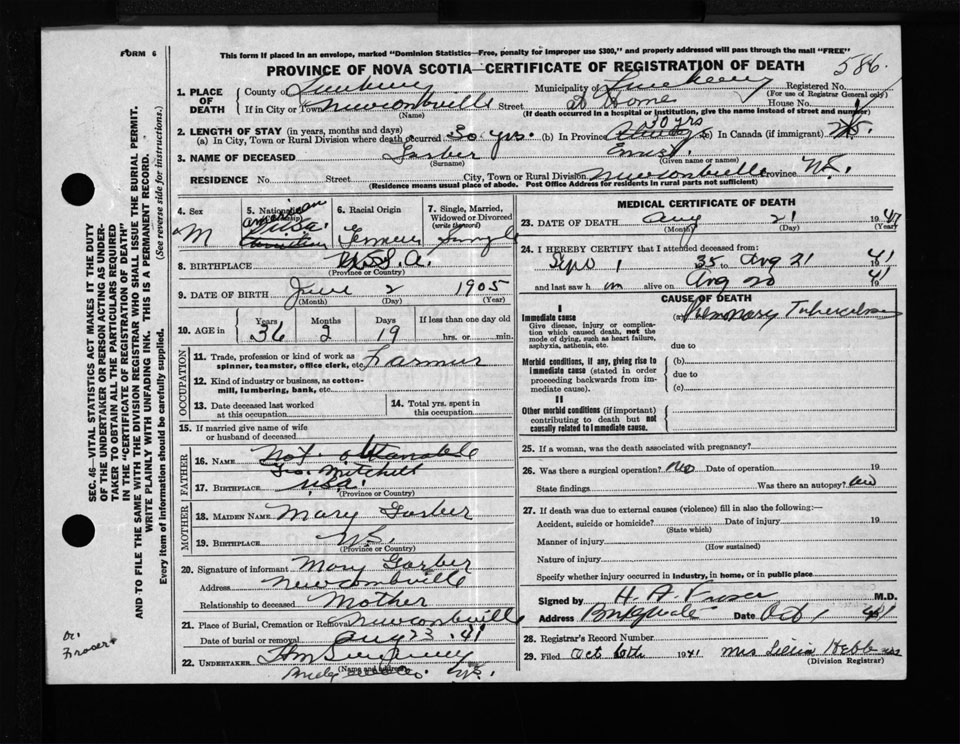 FORM 6
This form if placed in an envelope, marked "Dominion Statistics—Free, penalty for improper use $300," and properly addressed will pass through the mail "FREE"
PROVINCE OF NOVA SCOTIA—CERTIFICATE OF REGISTRATION OF DEATH
586.
SEC. 46—VITAL STATISTICS ACT MAKES IT THE DUTY
OF THE UNDERTAKER OR PERSON ACTING AS UNDER-
TAKER TO OBTAIN ALL THE PARTICULARS REQUIRED
IN THE "CERTIFICATE OF REGISTRATION OF DEATH"
AND TO FILE THE SAME WITH THE DIVISION REGISTRAR WHO SHALL ISSUE THE BURIAL PERMIT.
WRITE PLAINLY WITH UNFADING INK. THIS IS A PERMANENT RECORD.
(See reverse side for instructions).
Every item of information should be carefully supplied.
Dr. Fraser
1. PLACE OF DEATH
County of Lunenburg Municipality of Lunenburg Registered No.
(For use of Registrar General only)
If in City or Town Newcombville Street at Home House No.
(Name) (If death occurred in a hospital or institution, give the name instead of street and number)
2. LENGTH OF STAY (in years, months and days)
30 yrs
(a) In City, Town or Rural Division where death occurred 30 yrs. (b) In Province (c) In Canada (if immigrant)
3. NAME OF DECEASED Garber Ernest
(Surname) (Given name or names)
RESIDENCE No. Street City, Town or Rural Division Newcombville Province N.S.
(Residence means usual place of abode. Post Office Address for residents in rural parts not sufficient)
4. Sex M
5. Nationality American
6. Racial Origin German
7. Single, Married, Widowed or Divorced (write the word) Single
8. BIRTHPLACE U.S.A.
(Province or Country)
9. DATE OF BIRTH June 2 1905
(Month) (Day) (Year)
10. AGE in Years Months Days If less than one day old
36 2 19 hrs. or min.
OCCUPATION
11. Trade, profession or kind of work as spinner, teamster, office clerk, etc. Farmer
12. Kind of industry or business, as cotton-mill, lumbering, bank, etc.
13. Date deceased last worked at this occupation
14. Total yrs. spent in this occupation
15. If married give name of wife or husband of deceased
FATHER
16. NAME Not obtainable
Geo. Mitchell
17. BIRTHPLACE U.S.A.
(Province or Country)
MOTHER
18. MAIDEN NAME Mary Garber
19. BIRTHPLACE N.S.
(Province or Country)
20. Signature of informant Mary Garber
Address Newcombville
Relationship to deceased Mother
21. Place of Burial, Cremation or Removal Newcombville
Date of burial or removal Aug 23 '41
22. UNDERTAKER
(Name and Address)
N.S.
MEDICAL CERTIFICATE OF DEATH
23. DATE OF DEATH Aug 21 1941
(Month) (Day) (Year)
24. I HEREBY CERTIFY that I attended deceased from:
Sept 1 35 to Aug 21 41
and last saw h im alive on Aug 20 41
CAUSE OF DEATH
Immediate cause
Give disease, injury or complication which caused death, not the mode of dying, such as heart failure, asphyxia, asthenia, etc.
(a) Pulmonary Tuberculosis
due to
Morbid conditions, if any, giving rise to immediate cause (stated in order proceeding backwards from immediate cause).
(b)
due to
(c)
II
Other morbid conditions (if important) contributing to death but not causally related to immediate cause.
25. If a woman, was the death associated with pregnancy?
26. Was there a surgical operation? No Date of operation 19
State findings Was there an autopsy? no
27. If death was due to external causes (violence) fill in also the following:—
Accident, suicide or homicide? Date of injury 19
(State which)
Manner of injury
(How sustained)
Nature of injury
Specify whether injury occurred in industry, in home, or in public place
Signed by H. A. Fraser M.D.
Address Bridgewater Date Oct 1 1941
28. Registrar's Record Number
29. Filed Oct 10th 1941 Mrs Lillian Hebb
(Division Registrar)